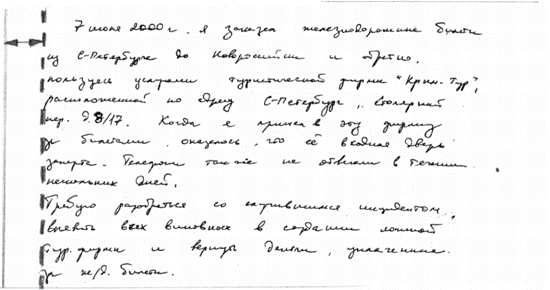 7 июля 2000 г. я заказал железнодорожные билеты
из С-Петербурга до Новороссийска и обратно.
пользуясь услугами туристической фирмы "Крим-Тур",
расположенной по адресу С-Петербург, Столярный
пер. д. 8/17. Когда я пришел в эту фирму
за билетами, оказалось, что её входная дверь
заперта. Телефоны также не отвечали в течении
нескольких дней.
Требую разобраться со случившимся инцидентом,
выявить всех виновных в создании ложной
тур. фирмы и вернуть деньги, уплаченные
за ж/д. билеты.